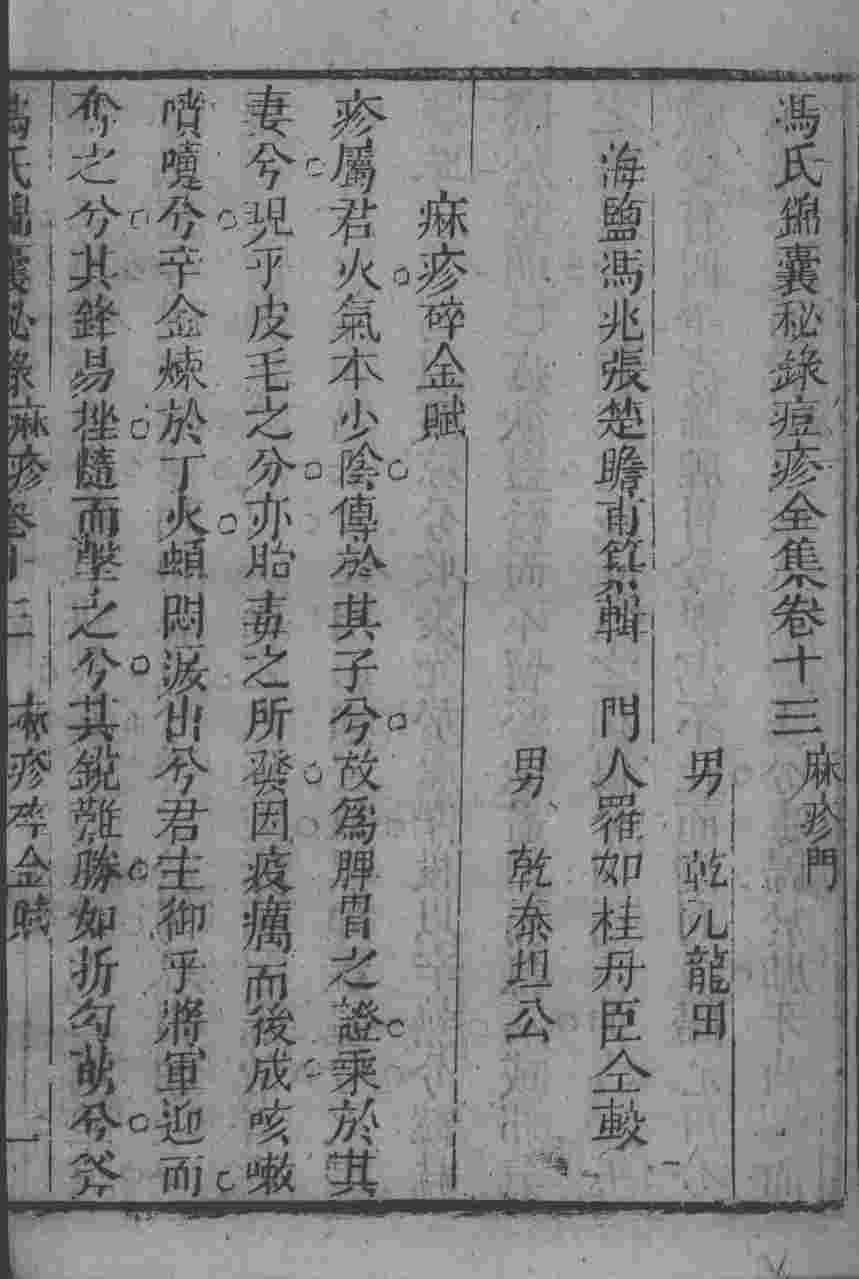 馮氏錦囊秘錄痘疹全集卷十三 麻疹門
男 乾元龍田
海鹽馮兆張楚瞻甫纂輯 門人羅如桂丹臣仝較
男 乾泰坦公
麻疹碎金賦
疹屬君火氣本少陰傳於其子兮故爲脾胃之證乘於其
妻兮現乎皮毛之分亦胎毒之所發因疫癘而後成咳嗽
噴嚏兮辛金煉於丁火頓悶淚出兮君主御乎將軍迎而
奪之兮其鋒易挫隨而擊之兮其銳難勝如折勾萌兮斧
馮氏錦囊秘錄麻疹卷十三 麻疹碎金賦 一